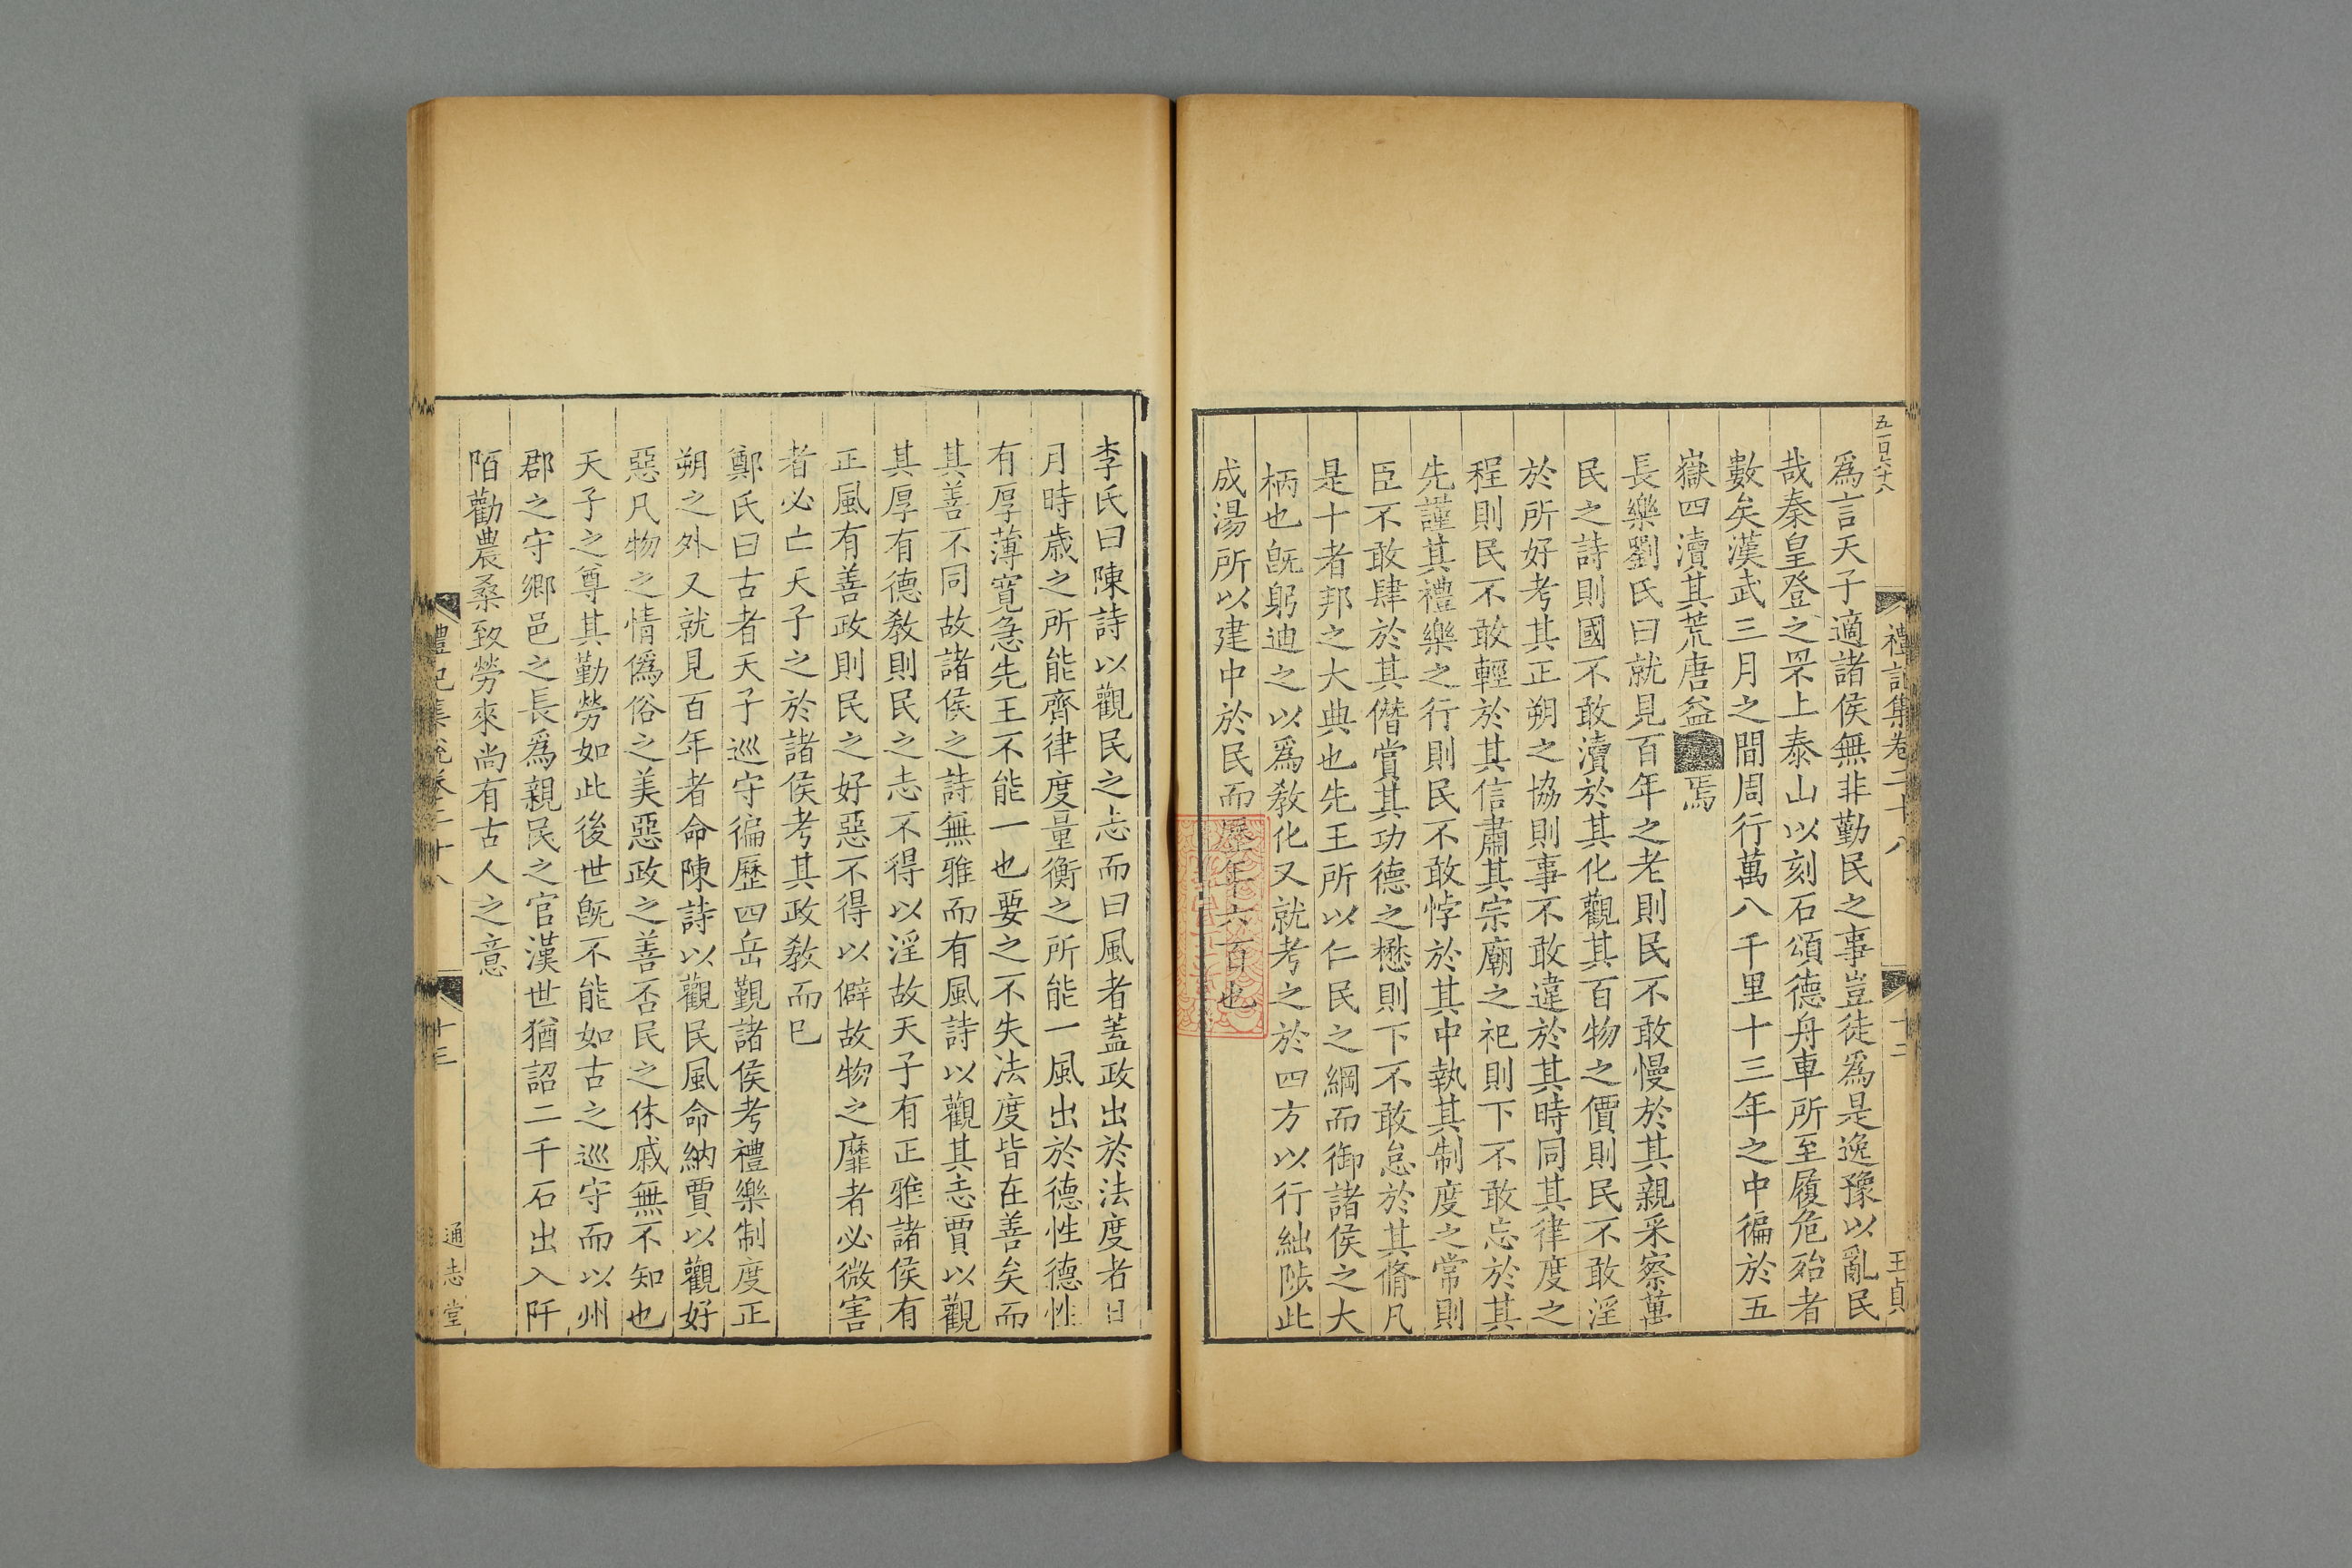 五百六十八
禮記集卷二十八
十二
王貞
爲言天子適諸侯無非勤民之事豈徒爲是逸豫以亂民
哉秦皇登之罘上泰山以刻石頌德舟車所至履危殆者
數矣漢武三月之間周行萬八千里十三年之中徧於五
嶽四瀆其荒唐益焉
長樂劉氏曰就見百年之老則民不敢慢於其親采察萬
民之詩則國不敢瀆於其化觀其百物之價則民不敢淫
於所好考其正朔之協則事不敢違於其時同其律度之
程則民不敢輕於其信肅其宗廟之祀則下不敢忘於其
先謹其禮樂之行則民不敢悖於其中執其制度之常則
臣不敢肆於其僭賞其功德之懋則下不敢怠於其脩凡
是十者邦之大典也先王所以仁民之綱而御諸侯之大
柄也旣躬迪之以爲敎化又就考之於四方以行絀陟此
成湯所以建中於民而歷年六百也
李氏曰陳詩以觀民之志而曰風者蓋政出於法度者日
月時歲之所能齊律度量衡之所能一風出於德性德性
有厚薄寛急先王不能一也要之不失法度皆在善矣而
其善不同故諸侯之詩無雅而有風詩以觀其志賈以觀
其厚有德敎則民之志不得以淫故天子有正雅諸侯有
正風有善政則民之好惡不得以僻故物之靡者必微害
者必亡天子之於諸侯考其政敎而已
鄭氏曰古者天子巡守徧歷四岳覲諸侯考禮樂制度正
朔之外又就見百年者命陳詩以觀民風命納賈以觀好
惡凡物之情僞俗之美惡政之善否民之休戚無不知也
天子之尊其勤勞如此後世旣不能如古之巡守而以州
郡之守鄉邑之長爲親民之官漢世猶詔二千石出入阡
陌勸農桑致勞來尚有古人之意
禮記集說卷二十八
十三
通志堂